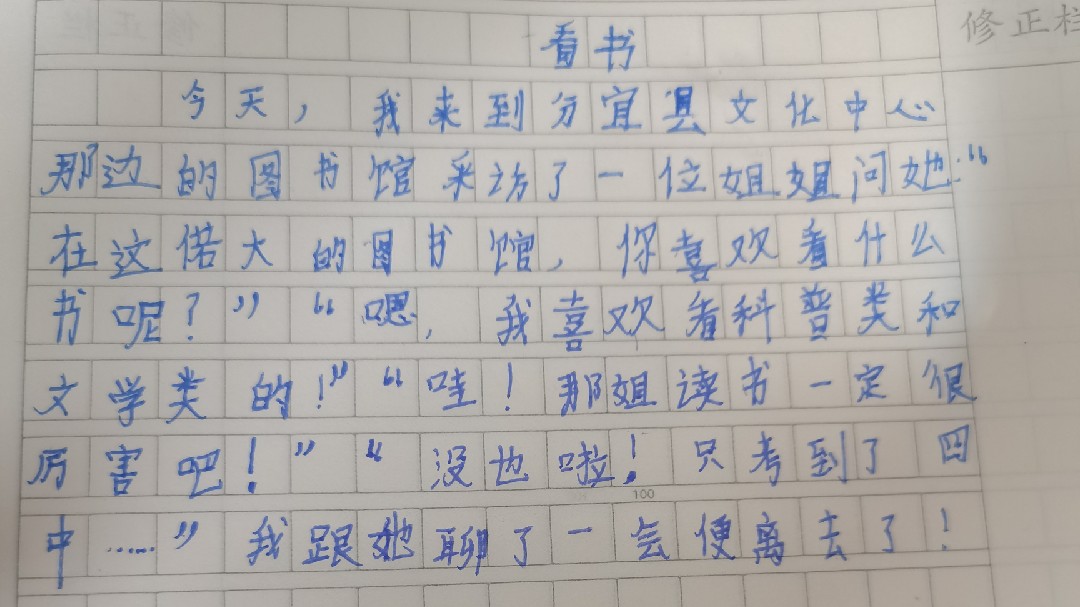 修正栏
看书
今天，我来到分宜县文化中心
那边的图书馆采访了一位姐姐问她:“
在这偌大的图书馆，你喜欢看什么
书呢？”“嗯，我喜欢看科普类和
文学类的！”“哇！那姐读书一定很
厉害吧！”“没也啦！只考到了四
100
中……”我跟她聊了一会便离去了！